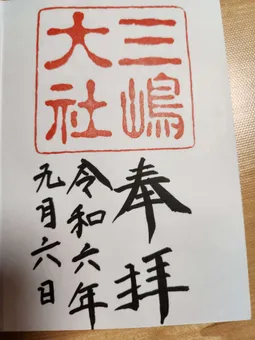 三嶋
大社
奉拝
令和六年
九月六日